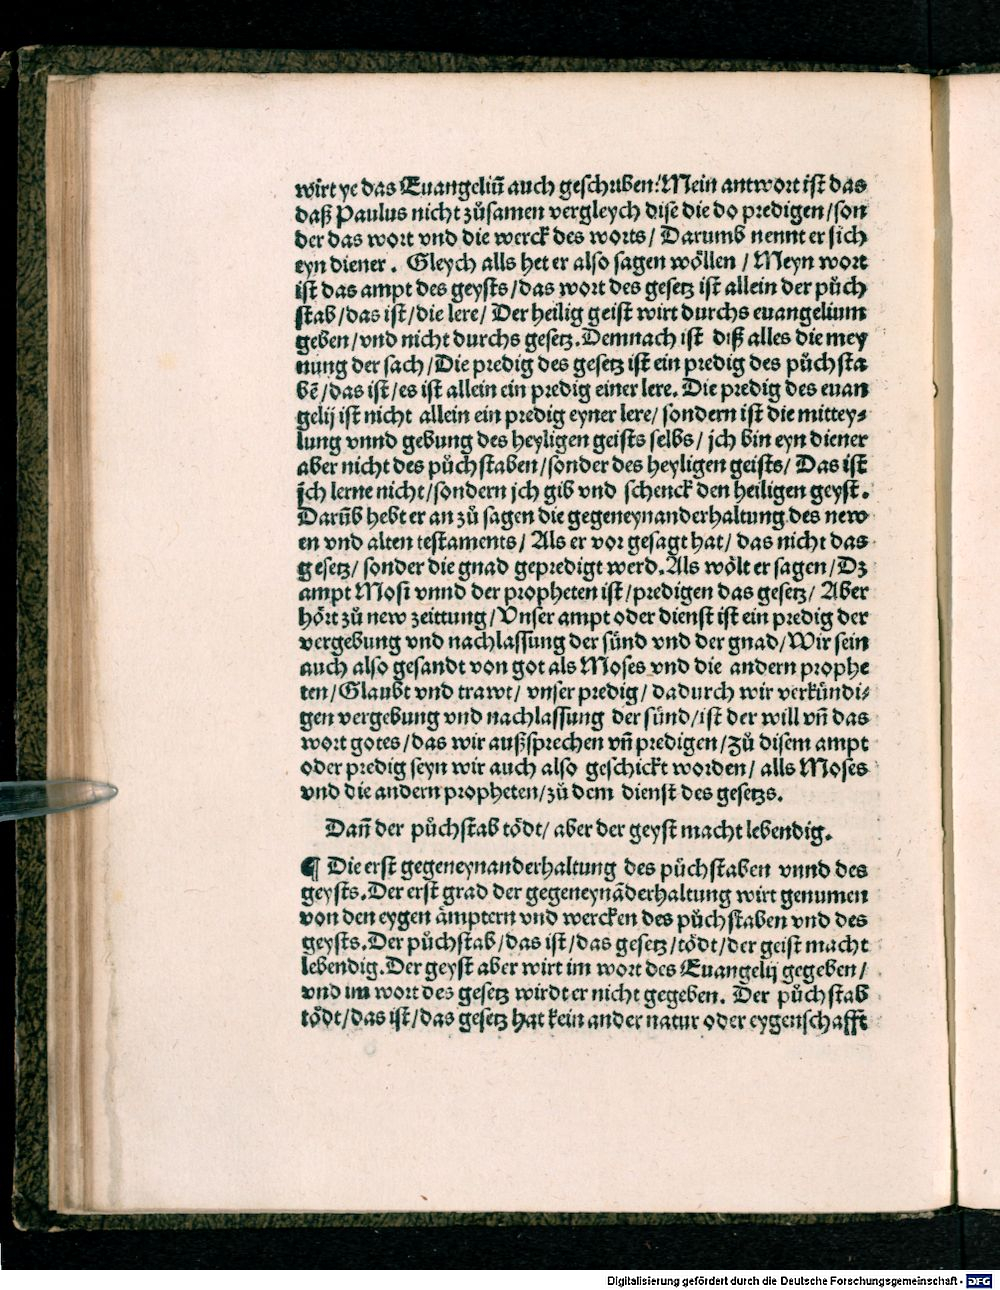 wirt ye das Euangeliū auch geschriben: Mein antwort ist das
daß Paulus nicht zůsamen vergleych dise die do predigen/son
der das wort vnd die werck des worts/ Darumb nennt er sich
eyn diener. Gleych alls het er also sagen wöllen / Meyn wort
ist das ampt des geysts/das wort des gesetz ist allein der půch
stab/das ist/die lere/ Der heilig geist wirt durchs euangelium
geben/vnd nicht durchs gesetz. Demnach ist diß alles die mey
nung der sach/Die predig des gesetz ist ein predig des půchsta
bē/das ist/es ist allein ein predig einer lere. Die predig des euan
gelij ist nicht allein ein predig eyner lere/ sondern ist die mittey⸗
lung vnnd gebung des heyligen geists selbs/ jch bin eyn diener
aber nicht des půchstaben/sonder des heyligen geists/ Das ist
jch lerne nicht/sondern jch gib vnd schenck den heiligen geyst.
Darūb hebt er an zů sagen die gegeneynanderhaltung des new
en vnd alten testaments/ Als er vor gesagt hat/ das nicht das
gesetz/ sonder die gnad gepredigt werd. Als wölt er sagen/ Dz
ampt Mosi vnnd der propheten ist/predigen das gesetz/ Aber
hört zů new zeittung/Vnser ampt oder dienst ist ein predig der
vergebung vnd nachlassung der sünd vnd der gnad/Wir sein
auch also gesandt von got als Moses vnd die andern prophe
ten/Glaubt vnd trawt/ vnser predig/ dadurch wir verkündi⸗
gen vergebung vnd nachlassung der sünd/ist der will vn̄ das
wort gotes/das wir außsprechen vn̄ predigen/Zů disem ampt
oder predig seyn wir auch also geschickt worden/ alls Moses
vnd die andern propheten/zů dem dienst des gesetzs.
Dan̄ der půchstab tödt/ aber der geyst macht lebendig.
¶ Die erst gegeneynanderhaltung des půchstaben vnnd des
geysts. Der erst grad der gegeneynāderhaltung wirt genumen
von den eygen ämptern vnd wercken des půchstaben vnd des
geysts. Der půchstab/das ist/das gesetz/tödt/der geist macht
lebendig. Der geyst aber wirt im wort des Euangelij gegeben/
vnd im wort des gesetz wirdt er nicht gegeben. Der půchstab
tödt/das ist/das gesetz hat kein ander natur oder eygenschafft
Digitalisierung gefördert durch die Deutsche Forschungsgemeinschaft - DFG